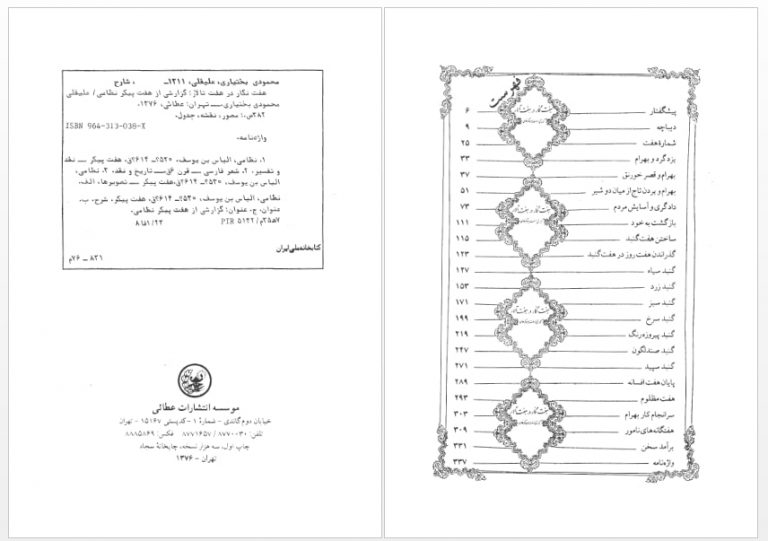 محمودی بختیاری، علیقلی، ۱۳۱۱ـ ، شارح
هفت نگار در هفت تالار: گزارشی از هفت پیکر نظامی / علیقلی
محمودی بختیاری ــ تهران: عطائی، ۱۳۷۶.
۳۸۲ص.: مصور، نقشه، جدول.
ISBN 964-313-038-X
واژه‌نامه.
۱. نظامی، الیاس بن یوسف، ۵۳۰؟ ـ ۶۱۴؟ق. هفت پیکر ــ نقد
و تفسیر. ۲. شعر فارسی ــ قرن ۶ق. ــ تاریخ و نقد. ۳. نظامی،
الیاس بن یوسف، ۵۳۰؟ ـ ۶۱۴؟ق. هفت پیکر ــ تصویرها. الف.
نظامی، الیاس بن یوسف، ۵۳۰؟ ـ ۶۱۴؟ق. هفت پیکر. شرح. ب.
عنوان. ج. عنوان: گزارشی از هفت پیکر نظامی.
PIR ۵۱۳۲ / م۳۵ه۷
۸فا۱/۲۳
کتابخانه ملی ایران
۸۲۱ ـ ۷۶م
موسسه انتشارات عطائی
خیابان دوم گاندی - شمارهٔ ۱ - کدپستی ۱۵۱۶۷ - تهران
تلفن: ۸۷۷۰۰۳۰ / ۸۷۷۱۶۵۷ فکس: ۸۸۸۵۸۶۹
چاپ اول، سه هزار نسخه، چاپخانهٔ سجاد
تهران - ۱۳۷۶
فهرست
پیشگفتار ۶
دیباچه ۹
شمارهٔ هفت ۲۵
یزدگرد و بهرام ۳۳
بهرام و قصر خورنق ۳۷
بهرام و بردن تاج از میان دو شیر ۵۱
دادگری و آسایش مردم ۷۳
بازگشت به خود ۱۱۱
ساختن هفت گنبد ۱۱۵
گذراندن هفت روز در هفت گنبد ۱۲۳
گنبد سیاه ۱۲۷
گنبد زرد ۱۵۳
گنبد سبز ۱۷۱
گنبد سرخ ۱۹۹
گنبد پیروزه‌رنگ ۲۱۹
گنبد صندلگون ۲۴۷
گنبد سپید ۲۷۱
پایان هفت افسانه ۲۸۹
هفت مظلوم ۲۹۳
سرانجام کار بهرام ۳۰۳
هفتگانه‌های نامور ۳۰۹
برآمد سخن ۳۳۱
واژه‌نامه ۳۳۷